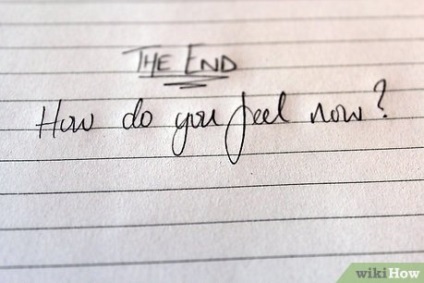 THE END
How do you feel now?
wikiHow